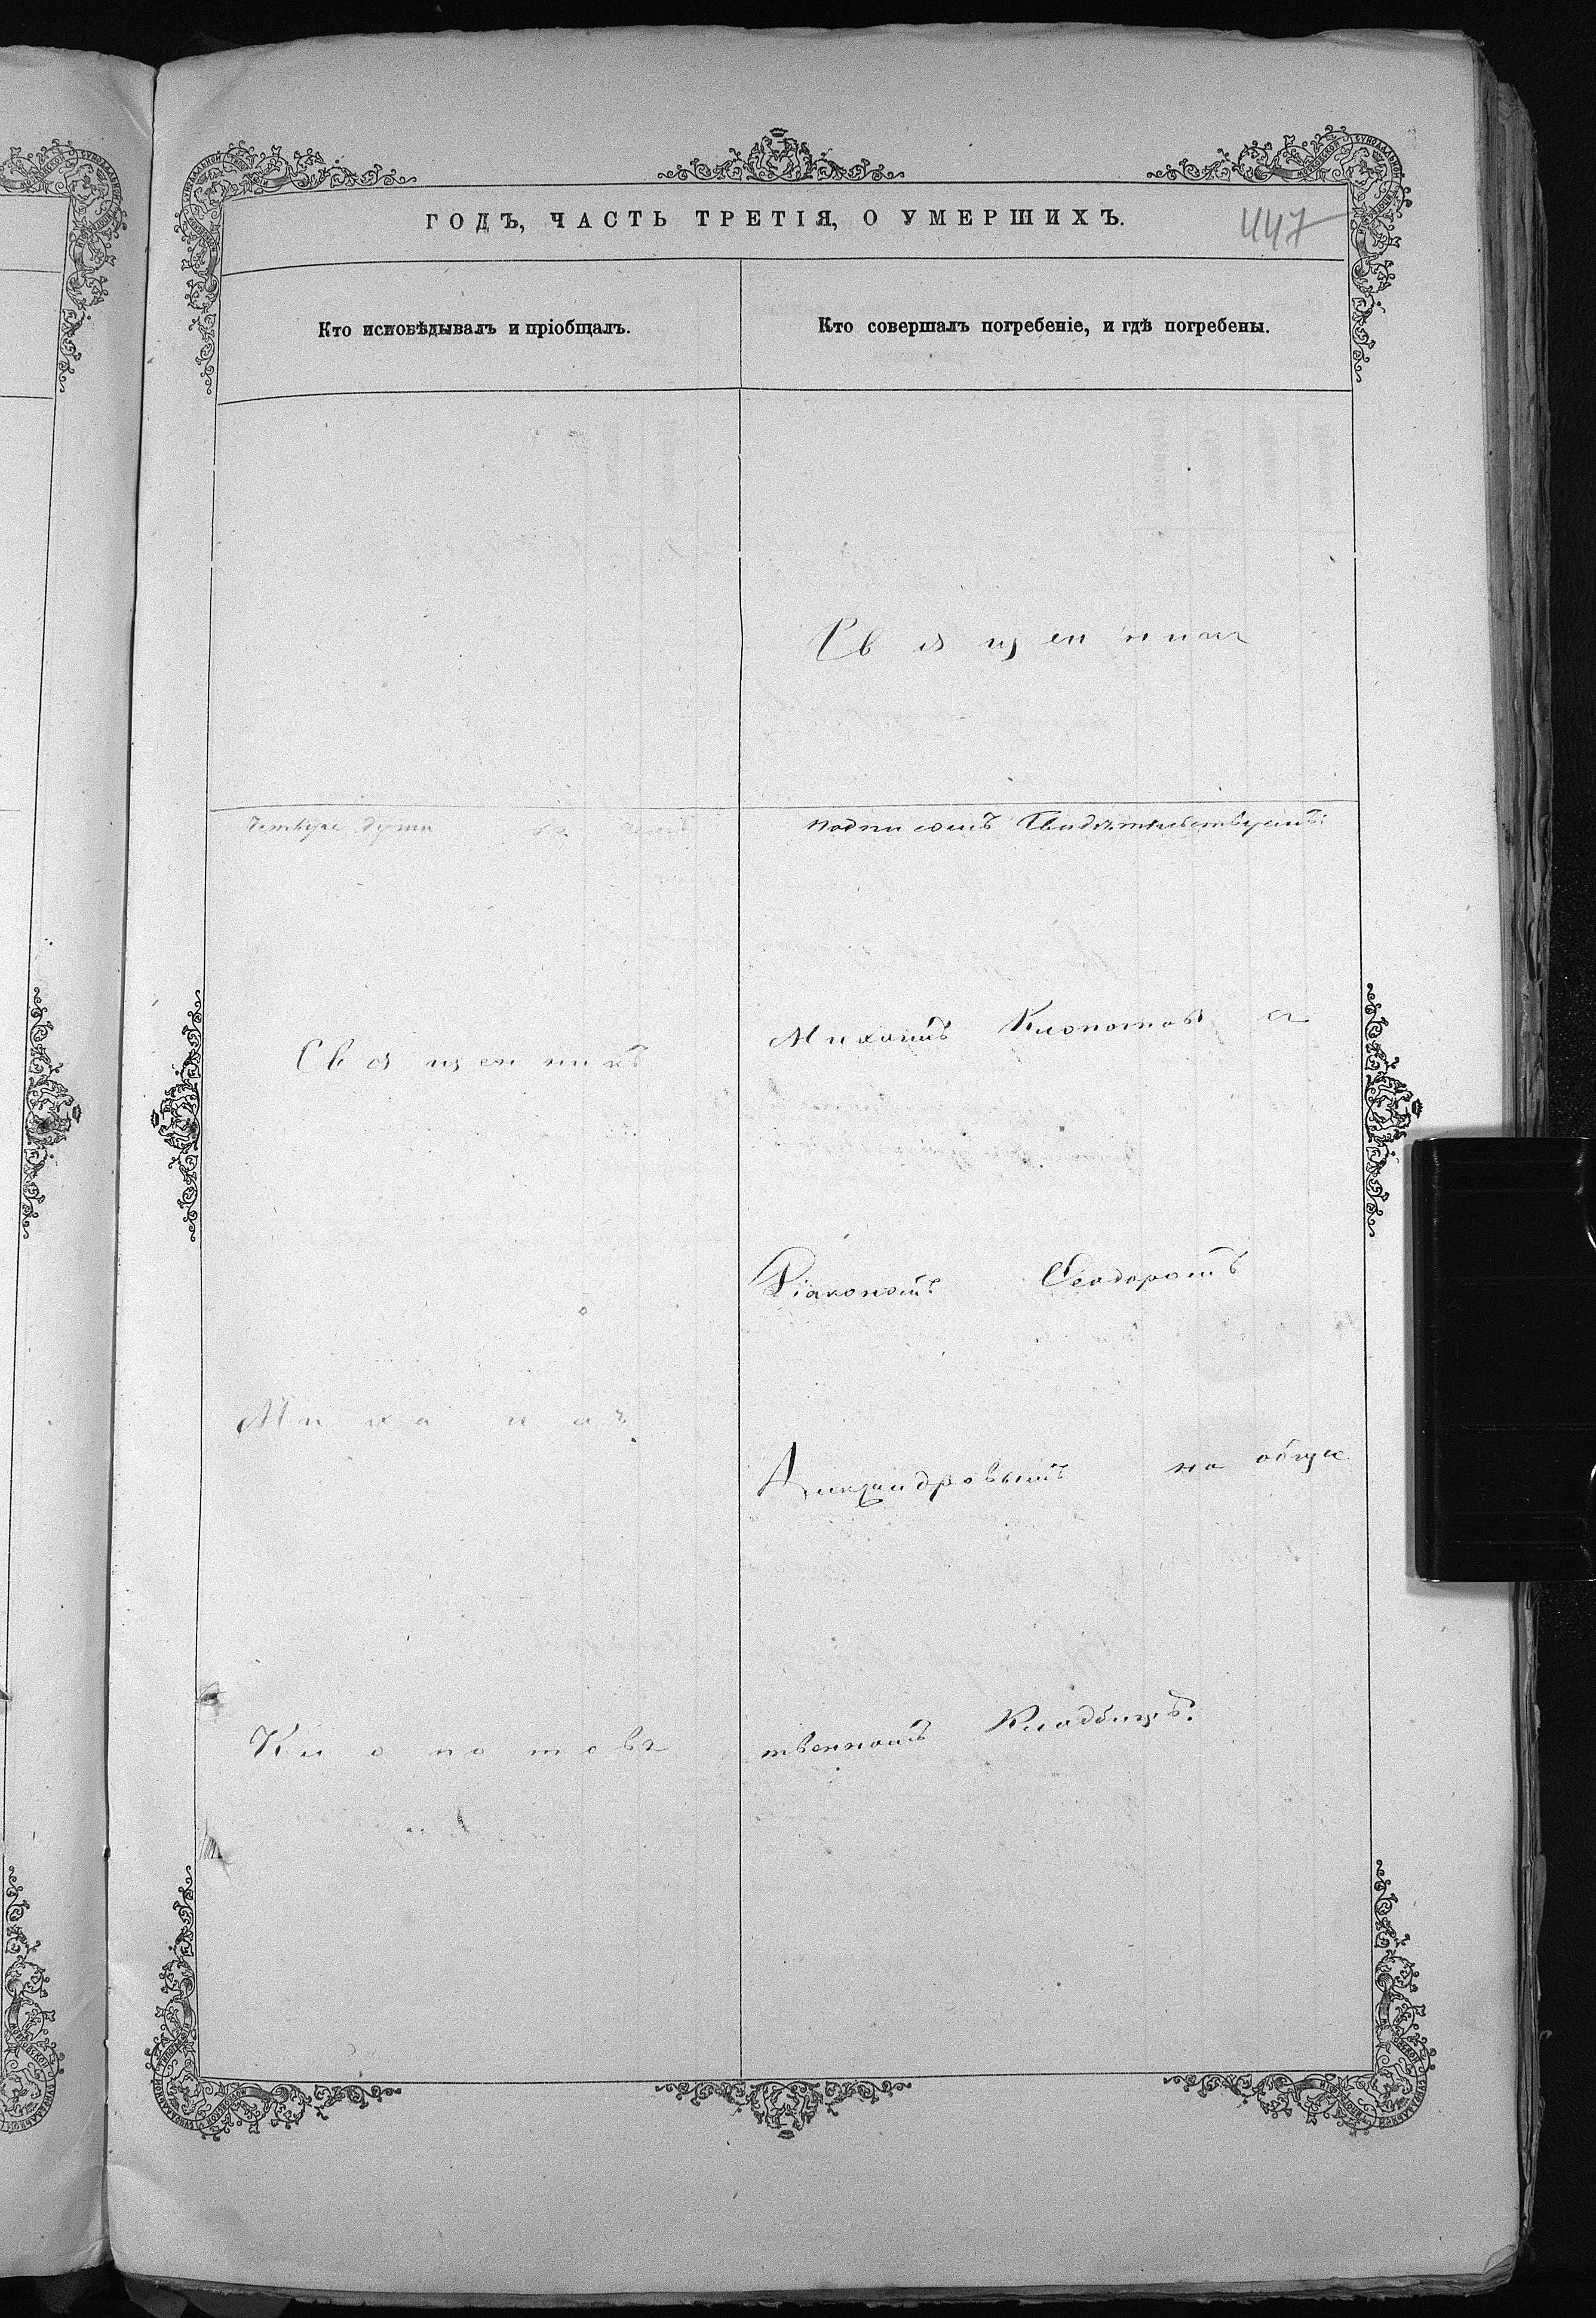 ГОДЪ, ЧАСТЬ ТРЕТІЯ, О УМЕРШИХЪ.
447
Кто исповѣдывалъ и пріобщалъ.
Кто совершалъ погребеніе, и гдѣ погребены.
Священник
четыре души въ чемъ
подписомъ Свидѣтельствуемъ:
Священникъ
Михаилъ Клопотовъ съ
Діакономъ Ѳеодоромъ
Михаилъ
Александровымъ на общес
Клопотовъ
твенномъ Кладбищѣ.